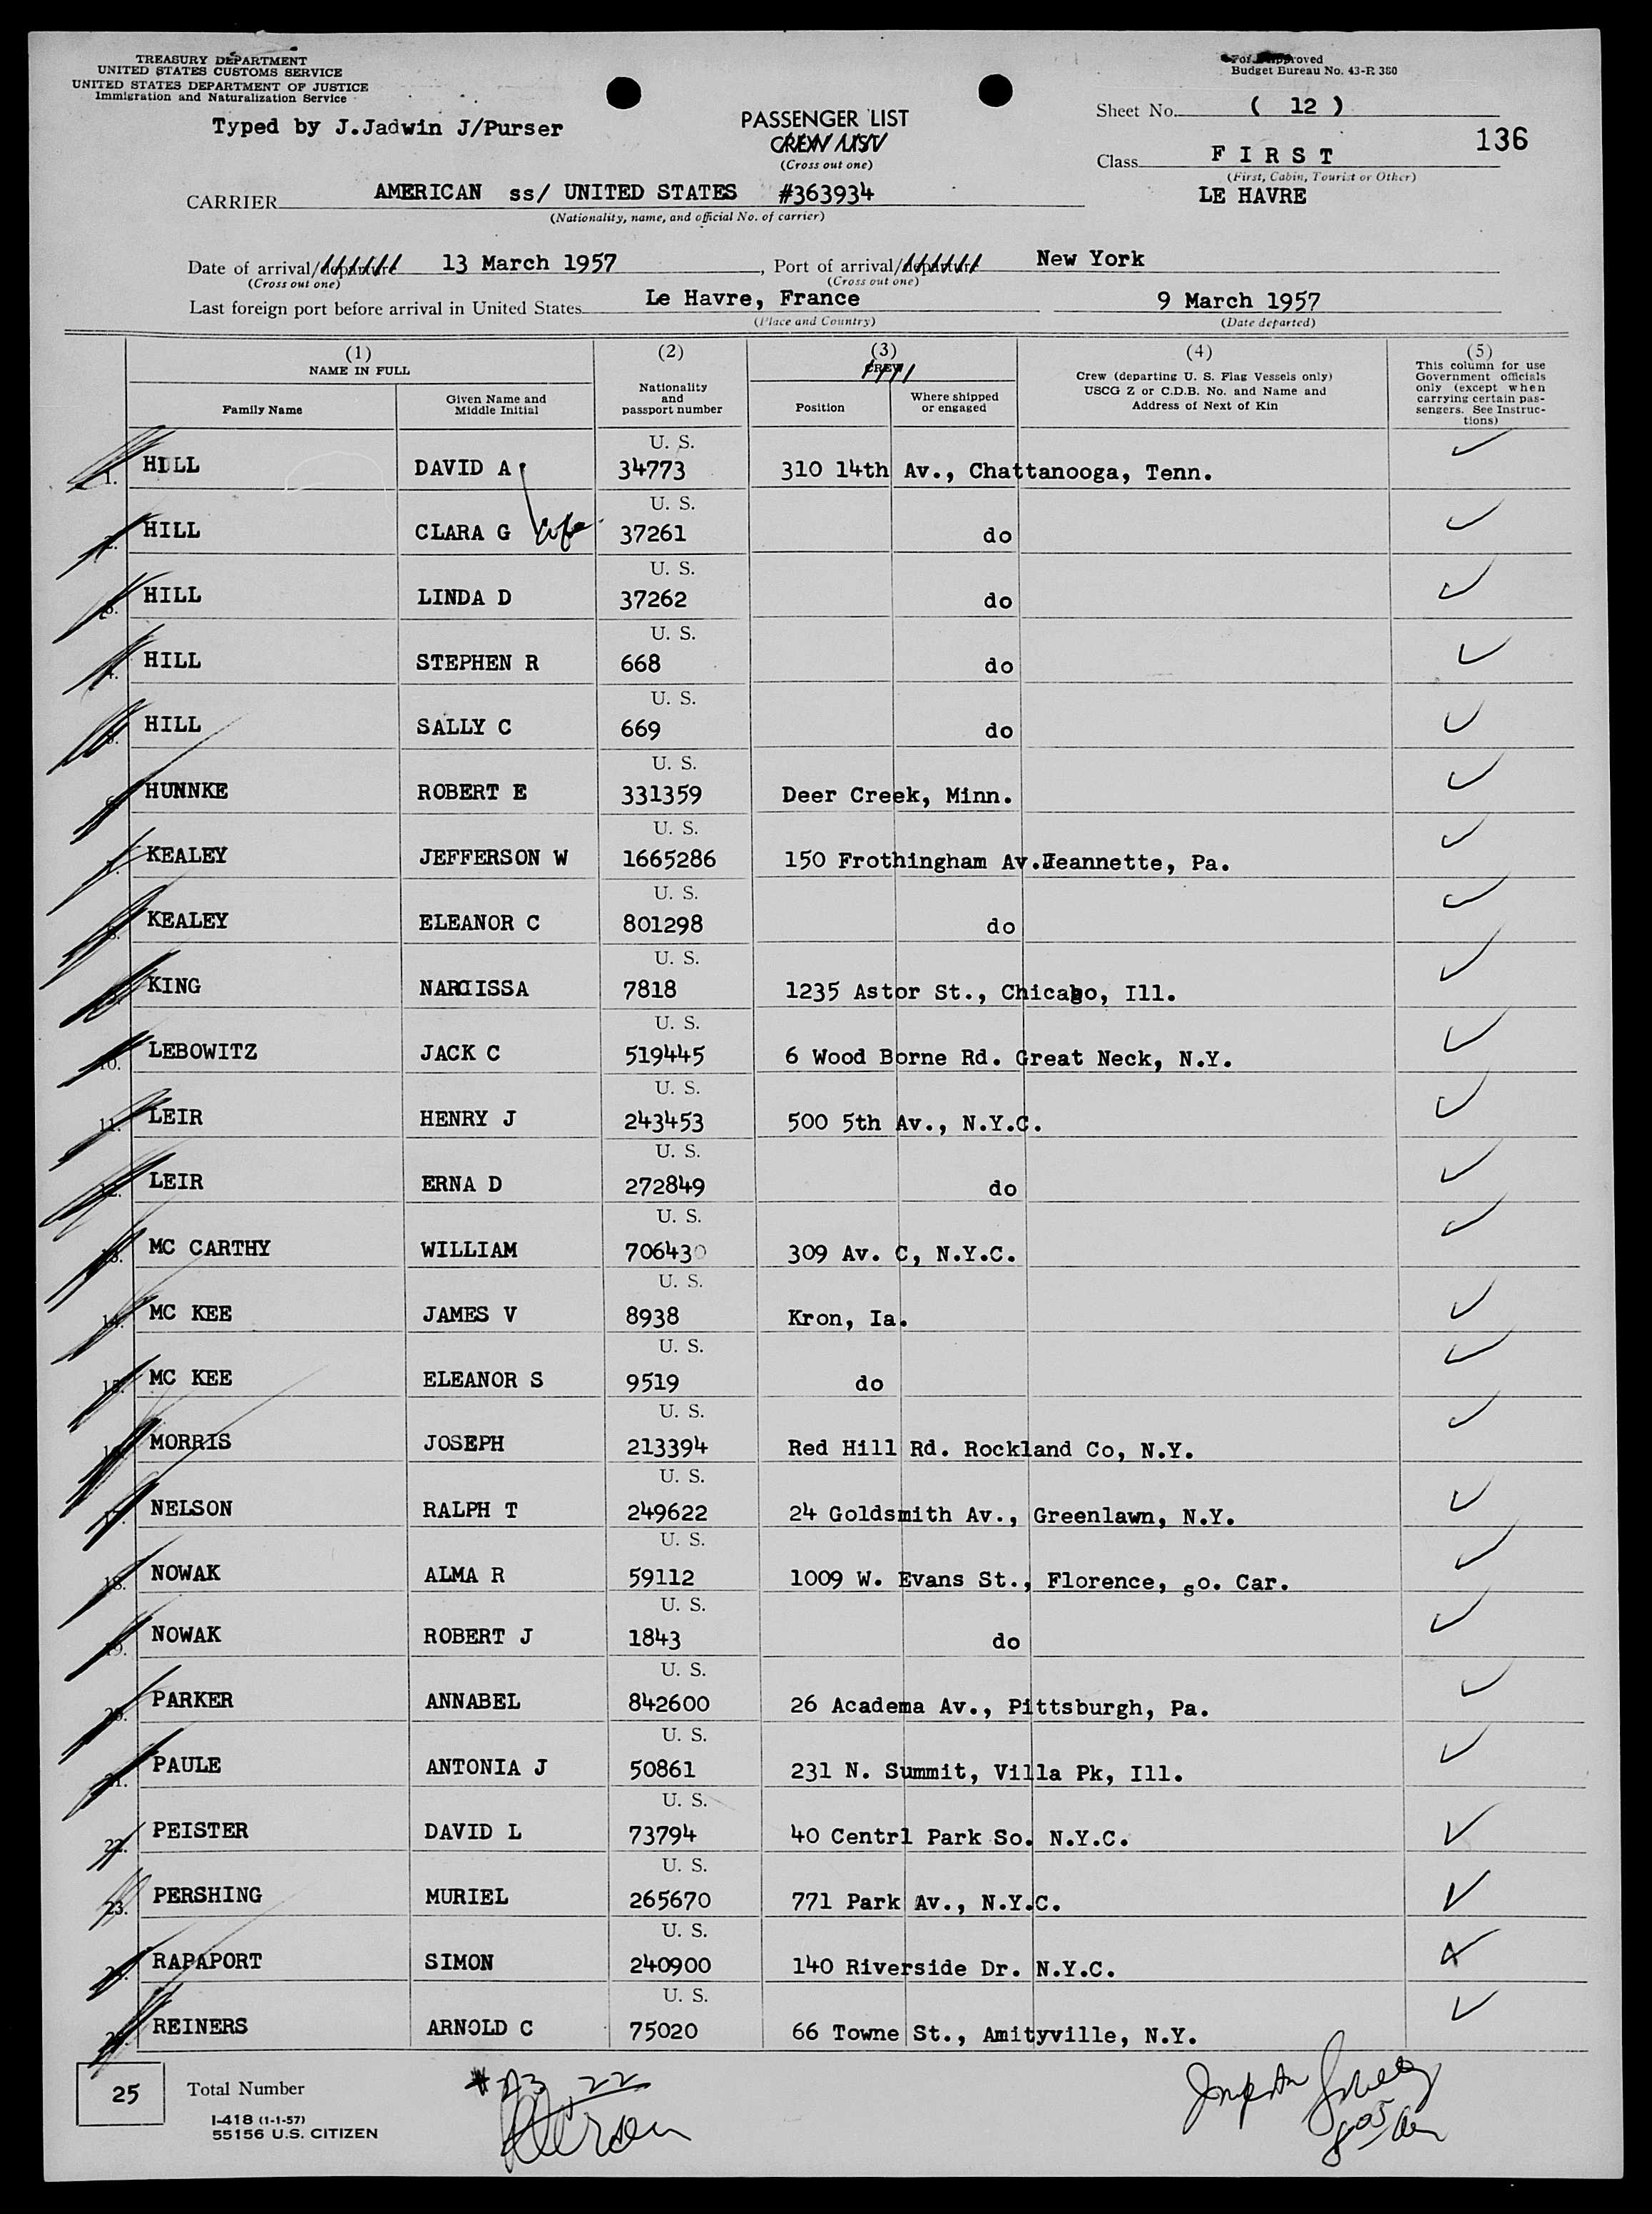 TREASURY DEPARTMENT
UNITED STATES CUSTOMS SERVICE
UNITED STATES DEPARTMENT OF JUSTICE
Immigration and Naturalization Service
Budget Bureau No. 43-R 380
Typed by J.Jadwin J/Purser
PASSENGER LIST
CREW LIST
(Cross out one)
Sheet No. ( 12 )
136
Class F I R S T
(First, Cabin, Tourist or Other)
LE HAVRE
CARRIER AMERICAN ss/ UNITED STATES #363934
(Nationality, name, and official No. of carrier)
Date of arrival/departure 13 March 1957, Port of arrival/departure New York
(Cross out one) (Cross out one)
Last foreign port before arrival in United States Le Havre, France 9 March 1957
(Place and Country) (Date departed)
(1) (2) (3) (4) (5)
NAME IN FULL
Family Name
Given Name and Middle Initial
Nationality and passport number
CREW
Position
Where shipped or engaged
Crew (departing U. S. Flag Vessels only)
USCG Z or C.D.B. No. and Name and
Address of Next of Kin
This column for use
Government officials
only (except when
carrying certain pas-
sengers. See Instruc-
tions)
U. S.
1. HILL DAVID A 34773 310 14th Av., Chattanooga, Tenn.
U. S.
2. HILL CLARA G wife 37261 do
U. S.
3. HILL LINDA D 37262 do
U. S.
4. HILL STEPHEN R 668 do
U. S.
5. HILL SALLY C 669 do
U. S.
6. HUNNKE ROBERT E 331359 Deer Creek, Minn.
U. S.
7. KEALEY JEFFERSON W 1665286 150 Frothingham Av.Jeannette, Pa.
U. S.
8. KEALEY ELEANOR C 801298 do
U. S.
9. KING NARCISSA 7818 1235 Astor St., Chicago, Ill.
U. S.
10. LEBOWITZ JACK C 519445 6 Wood Borne Rd. Great Neck, N.Y.
U. S.
11. LEIR HENRY J 243453 500 5th Av., N.Y.C.
U. S.
12. LEIR ERNA D 272849 do
U. S.
13. MC CARTHY WILLIAM 706430 309 Av. C, N.Y.C.
U. S.
14. MC KEE JAMES V 8938 Kron, Ia.
U. S.
15. MC KEE ELEANOR S 9519 do
U. S.
16. MORRIS JOSEPH 213394 Red Hill Rd. Rockland Co, N.Y.
U. S.
17. NELSON RALPH T 249622 24 Goldsmith Av., Greenlawn, N.Y.
U. S.
18. NOWAK ALMA R 59112 1009 W. Evans St., Florence, so. Car.
U. S.
19. NOWAK ROBERT J 1843 do
U. S.
20. PARKER ANNABEL 842600 26 Academa Av., Pittsburgh, Pa.
U. S.
21. PAULE ANTONIA J 50861 231 N. Summit, Villa Pk, Ill.
U. S.
22. PEISTER DAVID L 73794 40 Centrl Park So. N.Y.C.
U. S.
23. PERSHING MURIEL 265670 771 Park Av., N.Y.C.
U. S.
24. RAPAPORT SIMON 240900 140 Riverside Dr. N.Y.C.
U. S.
25. REINERS ARNOLD C 75020 66 Towne St., Amityville, N.Y.
25 Total Number
I-418 (1-1-57)
55156 U.S. CITIZEN
22